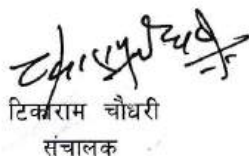 टिकाराम चौधरी
संचालक